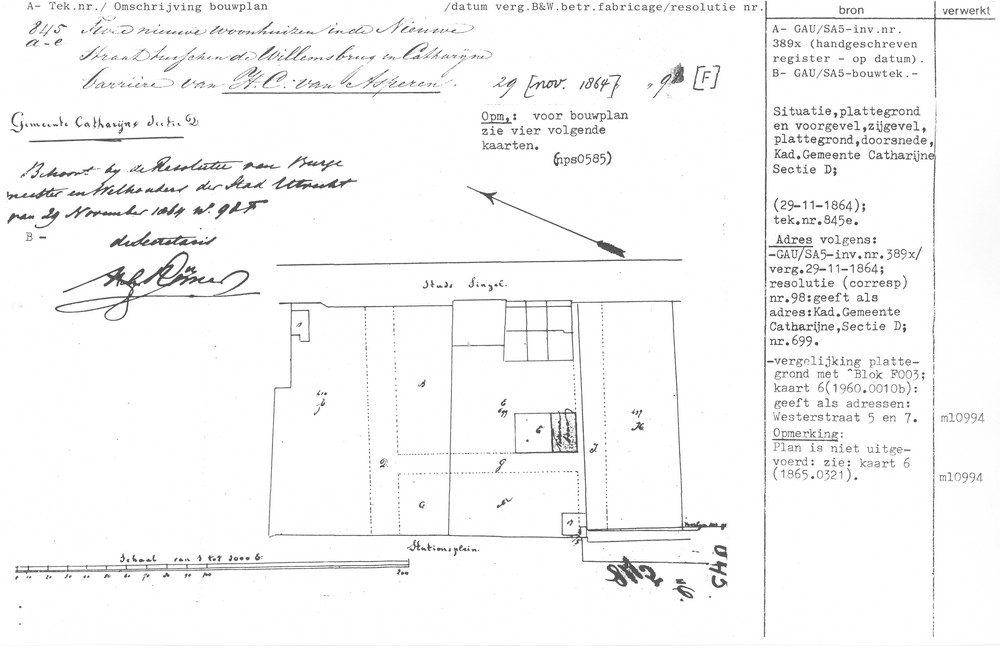 A- Tek.nr./ Omschrijving bouwplan /datum verg.B&W.betr.fabricage/resolutie nr.
845 Twee nieuwe woonhuizen in de Nieuwe
a-e Straat tusschen de Willemsbrug en Catharijne
barrière van H.C. van Asperen. 29 [nov. 1864] „98 [F]
Gemeente Catharijne Sectie D.
Opm.: voor bouwplan
zie vier volgende
kaarten.
(nps0585)
Behoort bij de Resolutie van Burge
meester en Wethouders der Stad Utrecht
van 29 November 1864 No. 98 F
B -
de Secretaris
Stads Singel.
B
D
G
J
K
Stationsplein.
Schaal van 1 tot 1000
200
845
bron
A- GAU/SA5-inv.nr.
389x (handgeschreven
register - op datum).
B- GAU/SA5-bouwtek.-
Situatie,plattegrond
en voorgevel,zijgevel,
plattegrond,doorsnede,
Kad.Gemeente Catharijne
Sectie D;
(29-11-1864);
tek.nr.845e.
Adres volgens:
-GAU/SA5-inv.nr.389x/
verg.29-11-1864;
resolutie (corresp)
nr.98:geeft als
adres:Kad.Gemeente
Catharijne,Sectie D;
nr.699.
-vergelijking platte-
grond met ^Blok F003;
kaart 6(1960.0010b):
geeft als adressen:
Westerstraat 5 en 7.
Opmerking:
Plan is niet uitge-
voerd: zie: kaart 6
(1865.0321).
verwerkt
m10994
m10994